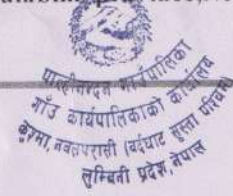 पाल्हीनन्दन गाउँपालिका
गाउँ कार्यपालिकाको कार्यालय
कुश्मा, नवलपरासी (बर्दघाट सुस्ता पश्चिम)
लुम्बिनी प्रदेश, नेपाल